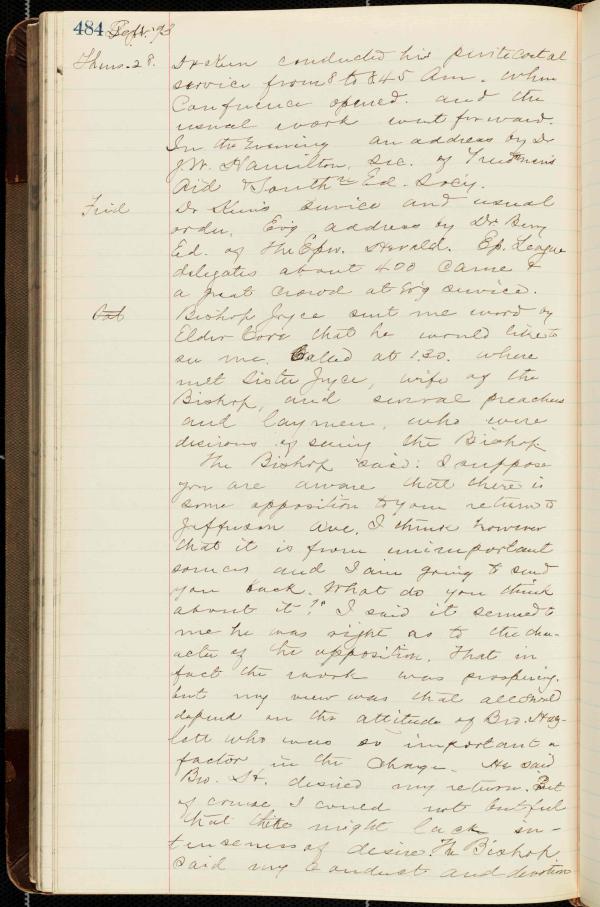 484 Sept. '93
Thurs. 28. Dr Keen conducted his pentecostal
service from 8 to 8 45 Am. when
Conference opened. and the
usual work went forward.
In the Evening an address by Dr
J.W. Hamilton, Sec. of Freedmen's
Aid & South'n Ed. Soc'y.
Frid Dr Keen's service and usual
order. Ev'g address by Dr Berry
Ed. of the Epw. Herald. Ep. League
delegates about 400 came &
a great crowd at Ev'g service.
Sat Bishop Joyce sent me word by
Elder that he would like to
see me. Called at 1.30. where
met Sister Joyce, wife of the
Bishop, and several preachers
and laymen, who were
desirous of seeing the Bishop
The Bishop said: I suppose
you are aware that there is
some opposition to your return to
Jefferson Ave. I think however
that it is from unimportant
sources and I am going to send
you back. What do you think
about it?" I said it seemed to
me he was right as to the char-
acter of the opposition. That in
fact the work was prospering.
but my view was that all would
depend on the attitude of Bro.
who was so important a
factor in the charge. He said
Bro. H. desired my return. But
of course I could not but feel
that there might lack in-
tenseness of desire. The Bishop
said my conduct and devotion